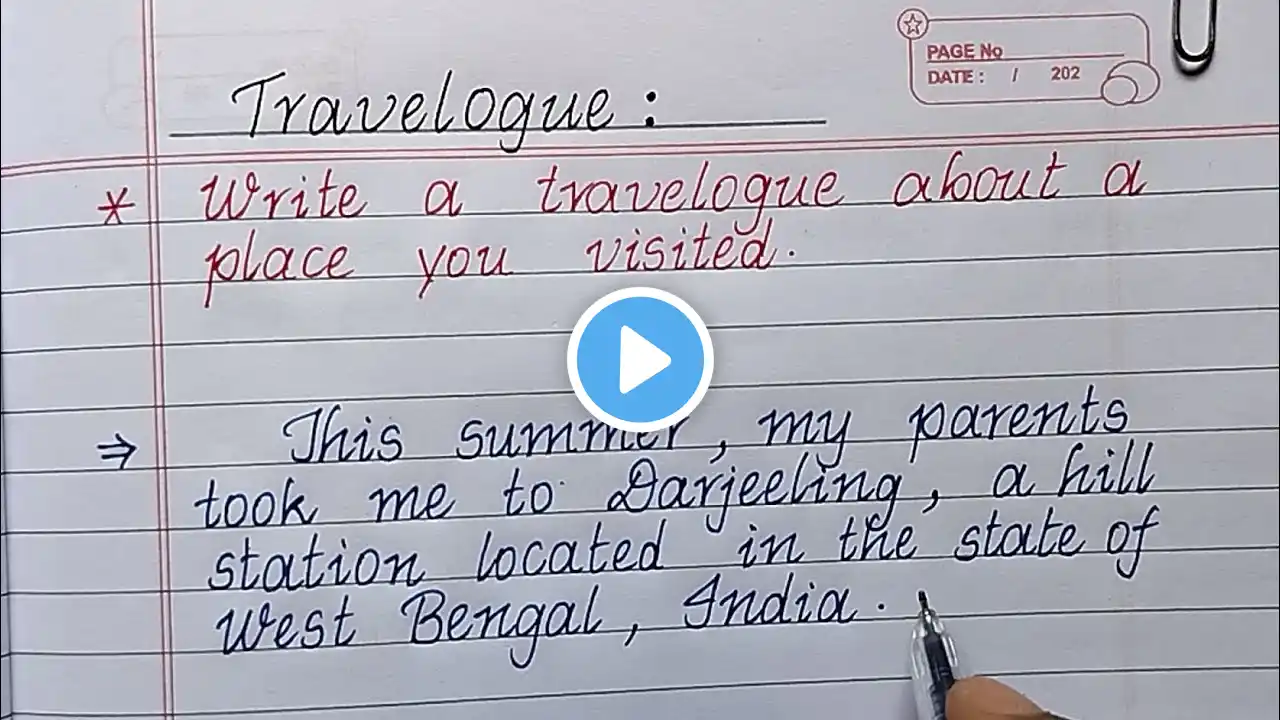 PAGE No
DATE : / 202
Travelogue :
* Write a travelogue about a
place you visited.
⇒ This summer, my parents
took me to Darjeeling, a hill
station located in the state of
West Bengal, India.